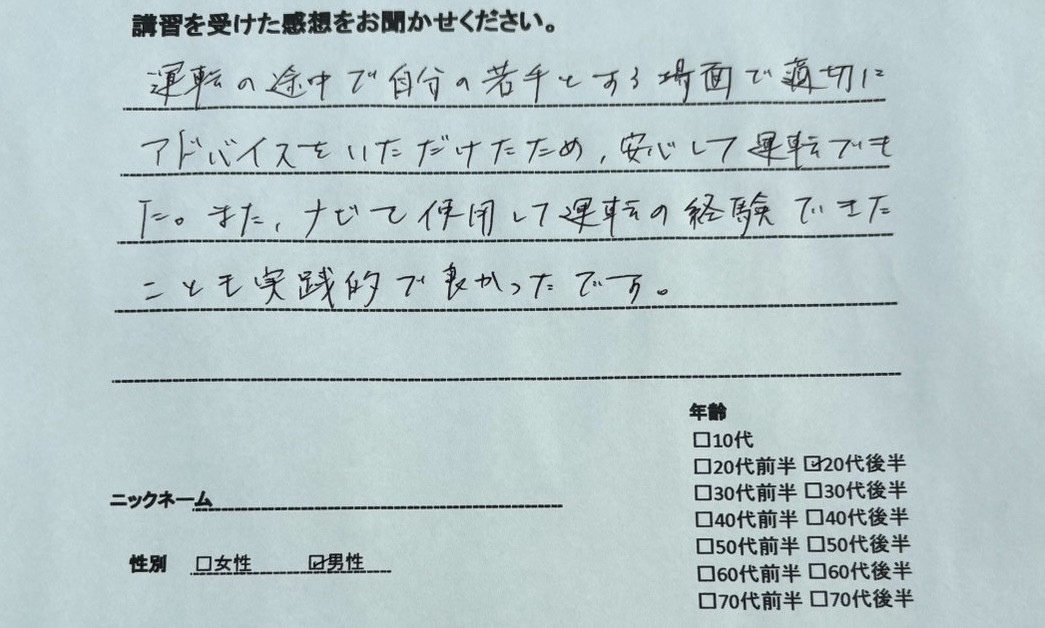 講習を受けた感想をお聞かせください。
運転の途中で自分の苦手とする場面で適切に
アドバイスをいただけたため、安心して運転でき
た。また、ナビを使用して運転の経験できた
ことも実践的で良かったです。
年齢
□10代
□20代前半 ☑20代後半
ニックネーム
□30代前半 □30代後半
□40代前半 □40代後半
性別 □女性 ☑男性
□50代前半 □50代後半
□60代前半 □60代後半
□70代前半 □70代後半